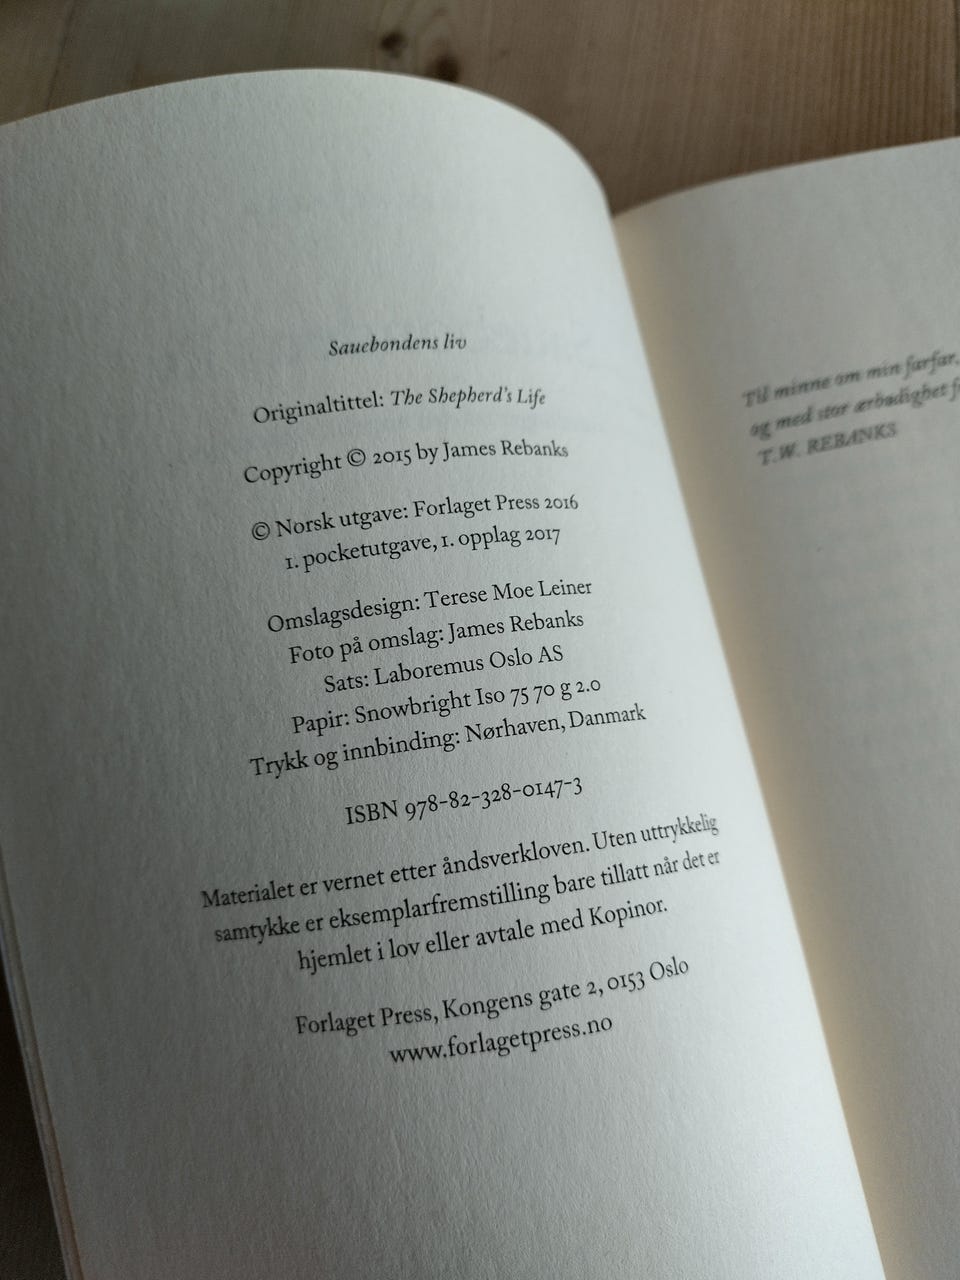 Sauebondens liv
Originaltittel: The Shepherd's Life
Copyright © 2015 by James Rebanks
© Norsk utgave: Forlaget Press 2016
1. pocketutgave, 1. opplag 2017
Omslagsdesign: Terese Moe Leiner
Foto på omslag: James Rebanks
Sats: Laboremus Oslo AS
Papir: Snowbright Iso 75 70 g 2.0
Trykk og innbinding: Nørhaven, Danmark
ISBN 978-82-328-0147-3
Materialet er vernet etter åndsverkloven. Uten uttrykkelig
samtykke er eksemplarfremstilling bare tillatt når det er
hjemlet i lov eller avtale med Kopinor.
Forlaget Press, Kongens gate 2, 0153 Oslo
www.forlagetpress.no
Til minne om min farfar,
og med stor ærbødighet
T.W. REBANKS